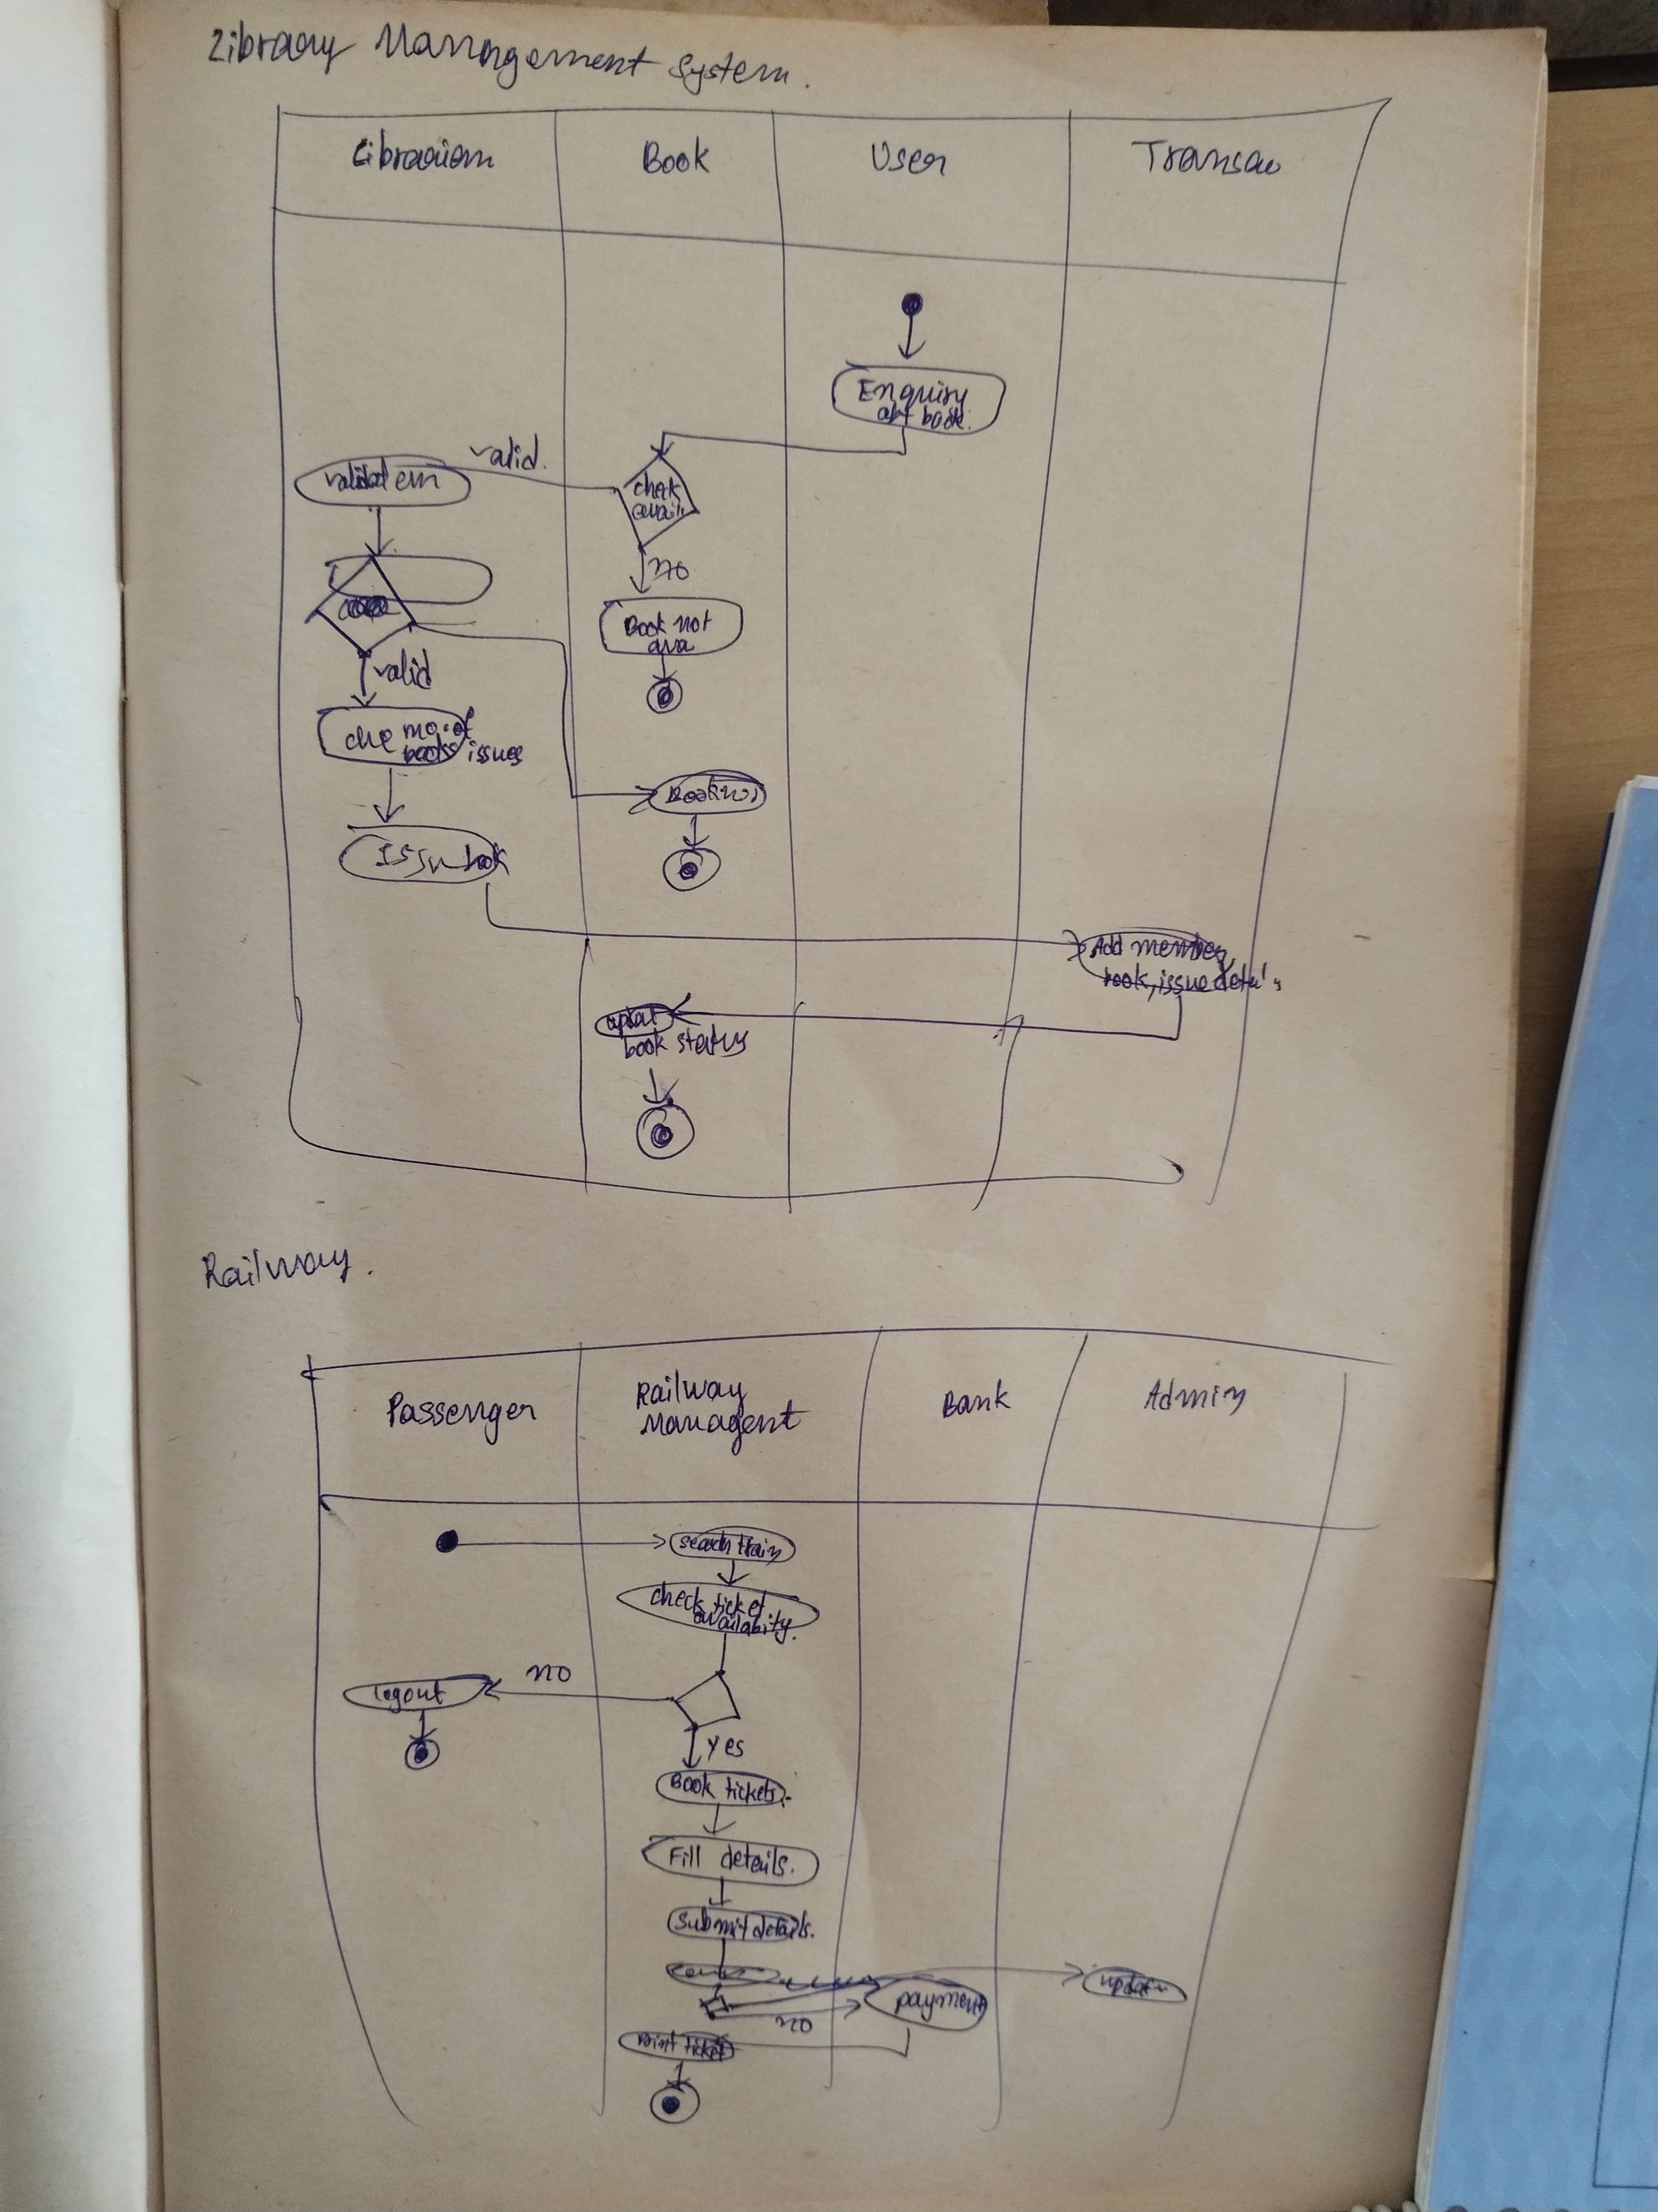 Library Management System.
Librarian
Book
User
Transac
Enquiry
abt book.
valid.
check
avail.
no
valid
Book not
ava
che no. of
books issues
Book not
Issu book
Add member,
book, issue details
updat
book status
Railway.
Passenger
Railway
Managent
Bank
Admin
search train
check ticket
availabity.
no
logout
Yes
Book tickets.
Fill details.
Submit details.
payment
no
print ticket